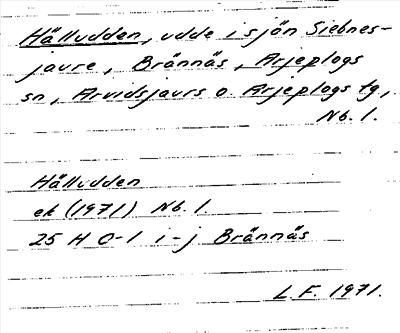 Hälludden, udde i sjön Siebnes-
jaure, Brännäs, Arjeplogs
sn, Arvidsjaurs o. Arjeplogs tg,
Nb. l.
Hälludden
ek (1971) Nb. l.
25 H 0-1 i-j Brännäs
L. F. 1971.